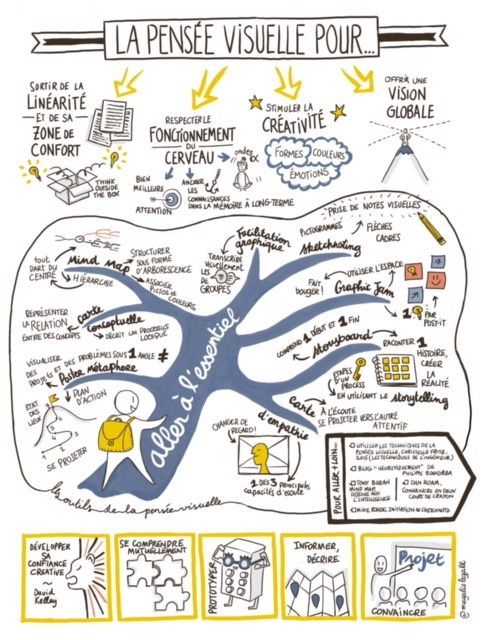 LA PENSÉE VISUELLE POUR...
SORTIR DE LA
LINÉARITÉ
ET DE SA
ZONE DE
CONFORT
THINK
OUTSIDE
THE BOX
RESPECTER LE
FONCTIONNEMENT
DU
CERVEAU
ondes
BIEN
MEILLEURE
ATTENTION
ANCRER
LES
CONNAISSANCES
DANS LA MÉMOIRE À LONG-TERME
STIMULER LA
CRÉATIVITÉ
FORMES
COULEURS
ÉMOTIONS
OFFRIR UNE
VISION
GLOBALE
TOUT
PART DU
CENTRE
Mind Map
HIÉRARCHIE
STRUCTURER
SOUS FORME
D'ARBORESCENCE
ASSOCIER
PICTOS ET
COULEURS
TRANSCRIRE
VISUELLEMENT
LES
DE
GROUPES
Facilitation
graphique
PRISE DE NOTES VISUELLES
PICTOGRAMMES
FLÈCHES
CADRES
Sketchnoting
REPRÉSENTER
LA RELATION
ENTRE DES CONCEPTS
Carte
conceptuelle
DÉCRIT UN PROCESSUS
LOGIQUE
FAIT
BOUGER!
UTILISER L'ESPACE
Graphic Jam
1
PAR
POST-IT
VISUALISER
DES
PROJETS ET
DES PROBLÈMES SOUS 1 ANGLE ≠
Poster métaphore
ETAT
DES
LIEUX
PLAN
D'ACTION
1
2
3
4
5
SE PROJETER
COMPREND 1 DÉBUT ET 1 FIN
Storyboard
RACONTER 1
HISTOIRE,
CRÉER
LA
RÉALITÉ
ETAPES
D'UN
PROCESS
EN UTILISANT LE storytelling
aller à l'essentiel
Carte
d'empathie
À L'ÉCOUTE
SE PROJETER VERS L'AUTRE
ATTENTIF
CHANGER DE
REGARD!
1 DES 3 PRINCIPALES
CAPACITÉS D'ÉCOUTE
les outils de la pensée visuelle
POUR ALLER + LOIN...
UTILISER LES TECHNIQUES DE LA
PENSÉE VISUELLE,
BLOG "HEURISTIQUEMENT" DE
PHILIPPE BOUKOBZA
TONY BUZAN
MIND MAP,
DESSINE MOI
L'INTELLIGENCE
DAN ROAM,
CONVAINCRE EN DEUX
COUPS DE CRAYON
MIKE ROHDE, INITIATION AU SKETCHNOTE
DÉVELOPPER
SA
CONFIANCE
CREATIVE
~
David
Kelley
SE COMPRENDRE
MUTUELLEMENT
PROTOTYPER
INFORMER,
DÉCRIRE
Projet
CONVAINCRE